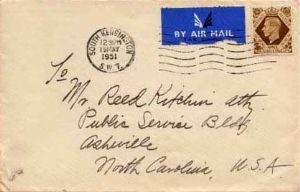 SOUTH KENSINGTON
12 30 PM
19 MAY
1951
S.W.7.
BY AIR MAIL
To
Mr Reed Kitchin atty.
Public Service Bldg
Asheville
North Carolina, U.S.A